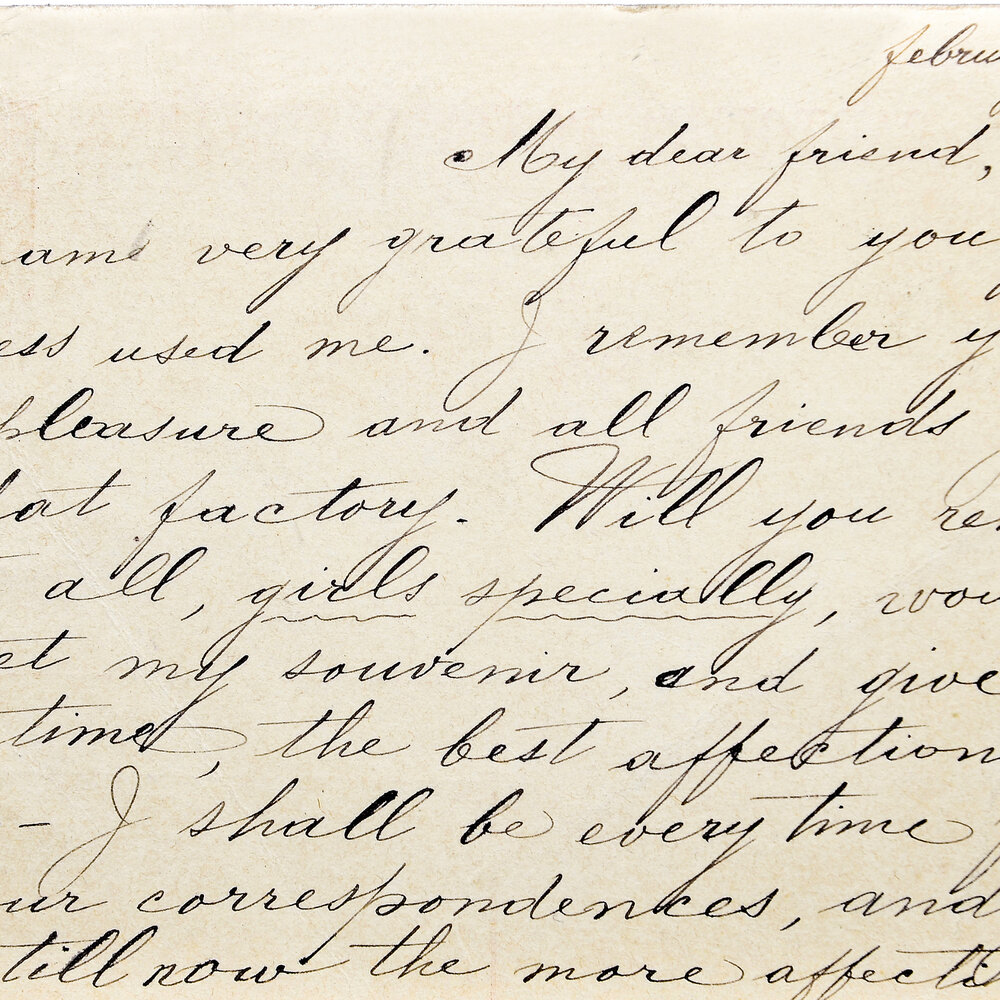 febru
My dear friend,
am very grateful to you
ess used me. I remember y
pleasure and all friends
hat factory. Will you re
all, girls specially, wou
et my souvenir, and give
time, the best affection
- I shall be every time
ur correspondences, and
till now the more affecti